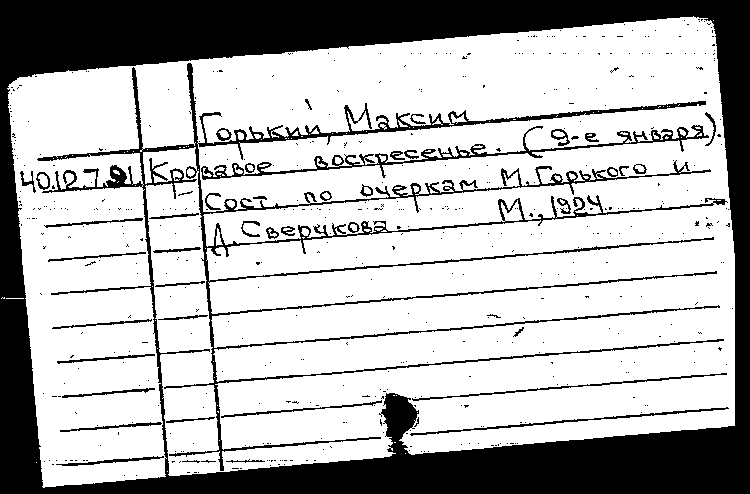 Горький, Максим
40.12.7.91. Кровавое воскресенье. (9-е января).
Сост. по очеркам М. Горького и
Д. Сверчкова. М., 1924.